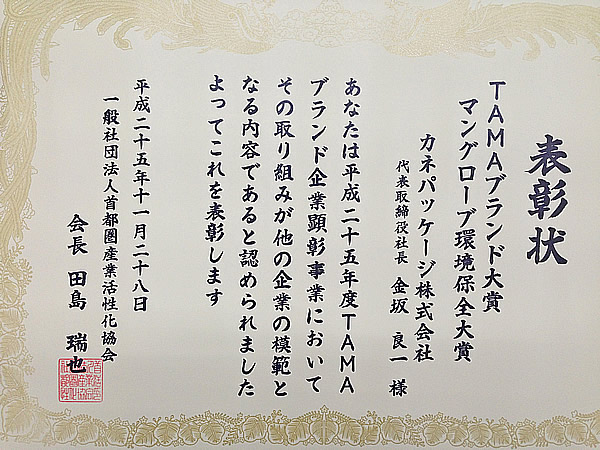 表彰状
TAMAブランド大賞
マングローブ環境保全大賞
カネパッケージ株式会社
代表取締役社長 金坂 良一 様
あなたは平成二十五年度TAMA
ブランド企業顕彰事業において
その取り組みが他の企業の模範と
なる内容であると認められました
よってこれを表彰します
平成二十五年十一月二十八日
一般社団法人首都圏産業活性化協会
会長 田島 瑞也